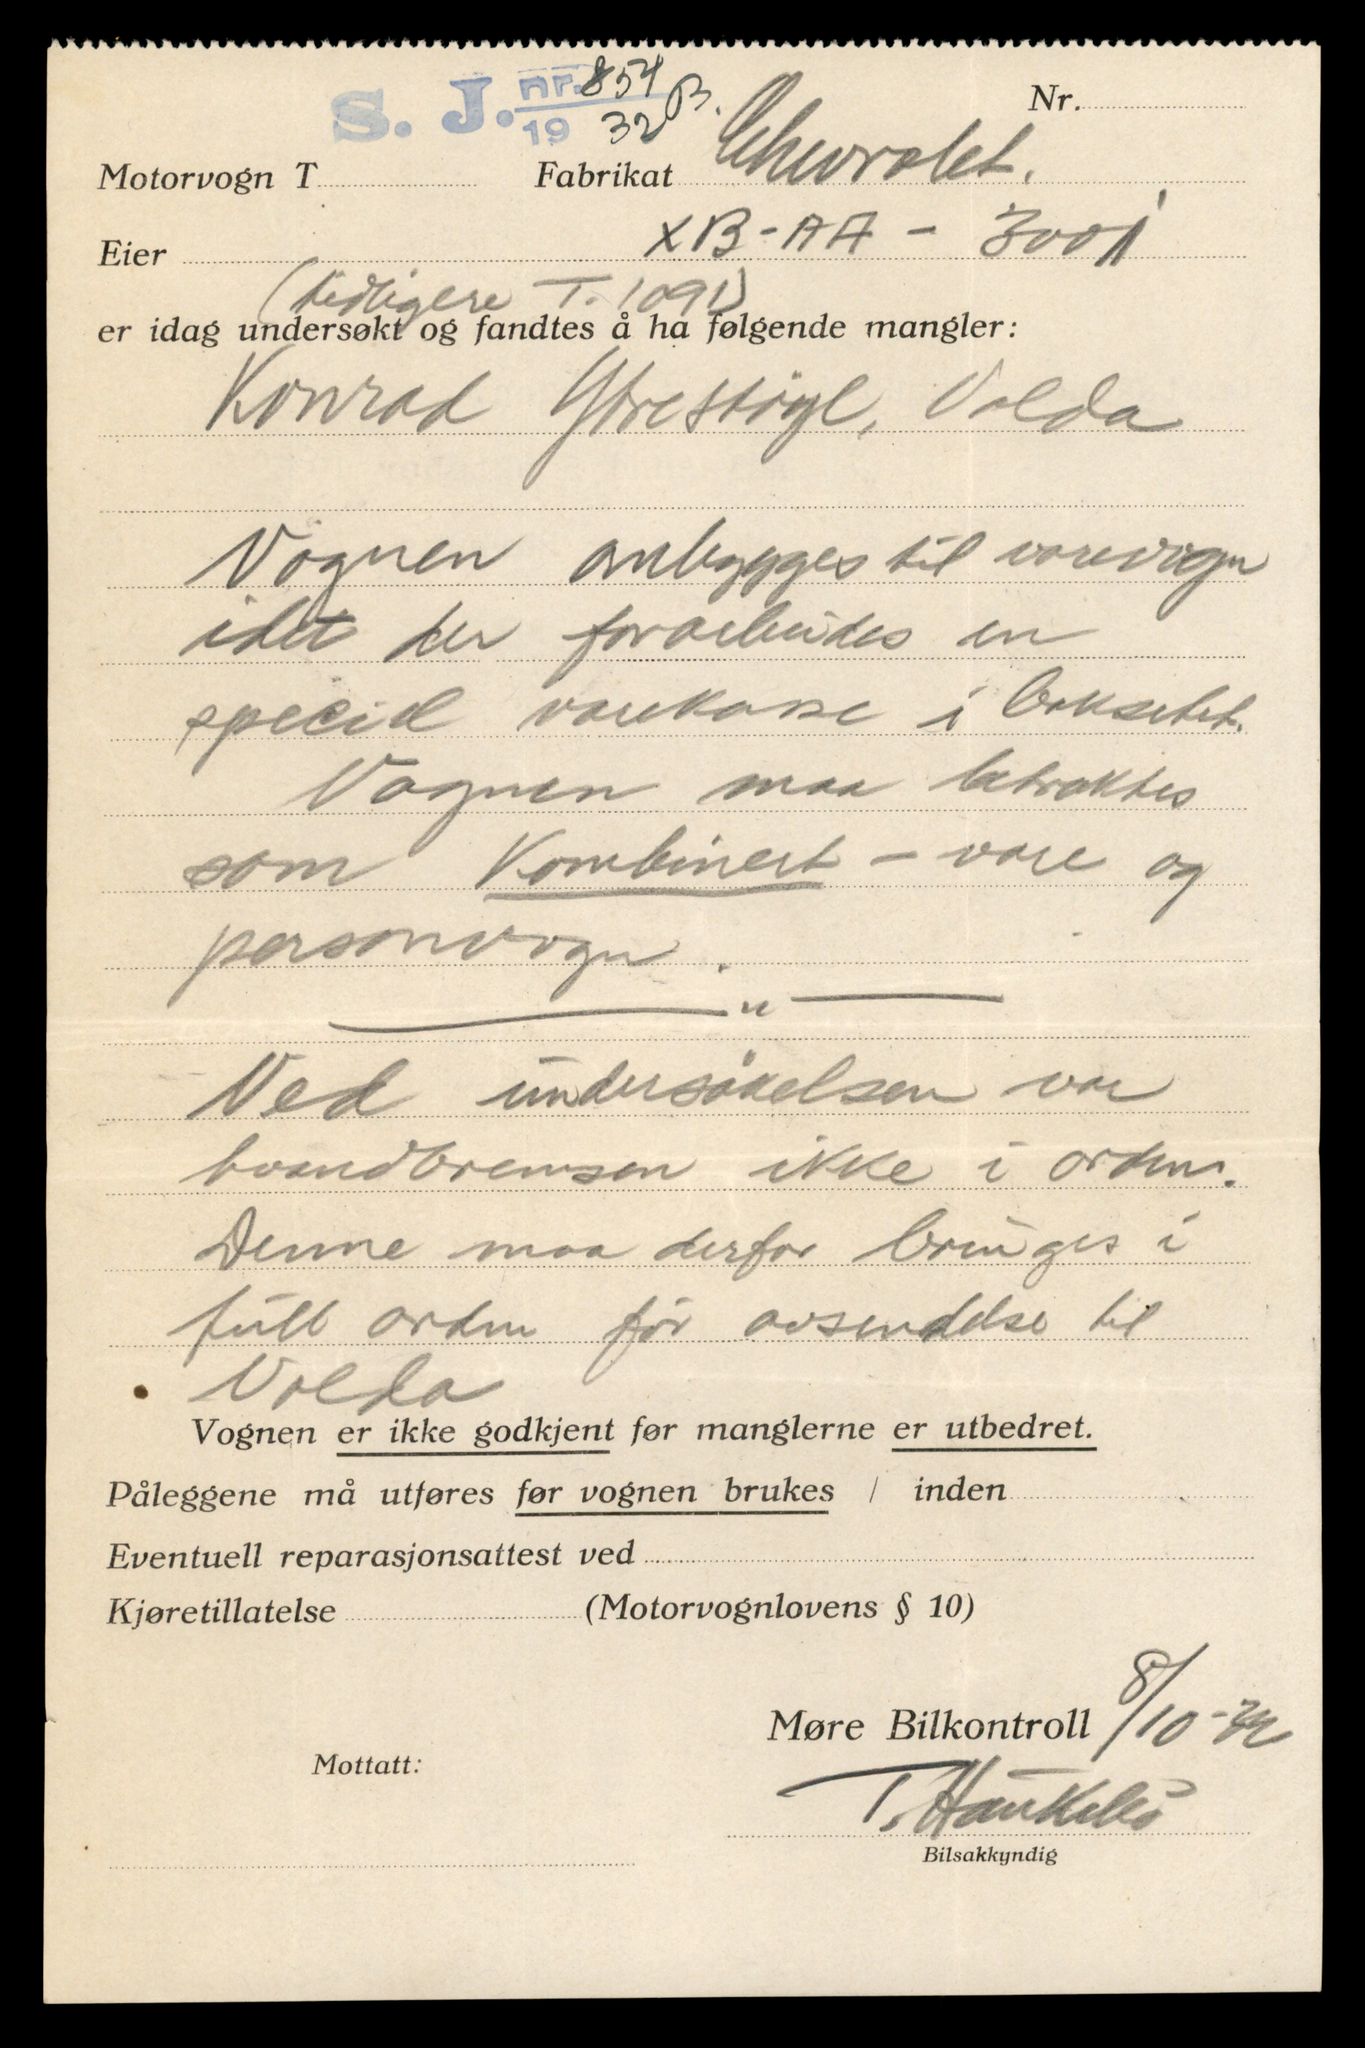 S. J. nr. 854 B.
19 32
Nr.
Motorvogn T Fabrikat Chevrolet.
Eier XB-AA - 3001
(tidligere T. 1091)
er idag undersøkt og fandtes å ha følgende mangler:
Konrad Ytrestöyl, Volda
Vognen ombygges til varevogn
idet der forarbeides en
speciel varekasse i baksetet.
Vognen maa betraktes
som Kombinert - vare og
personvogn.
Ved undersökelsen var
haandbremsen ikke i orden.
Denne maa derfor bringes i
full orden för avsendelse til
Volda
Vognen er ikke godkjent før manglerne er utbedret.
Påleggene må utføres før vognen brukes / inden
Eventuell reparasjonsattest ved
Kjøretillatelse (Motorvognlovens § 10)
Møre Bilkontroll 8/10-32
Mottatt:
T.
Bilsakkyndig